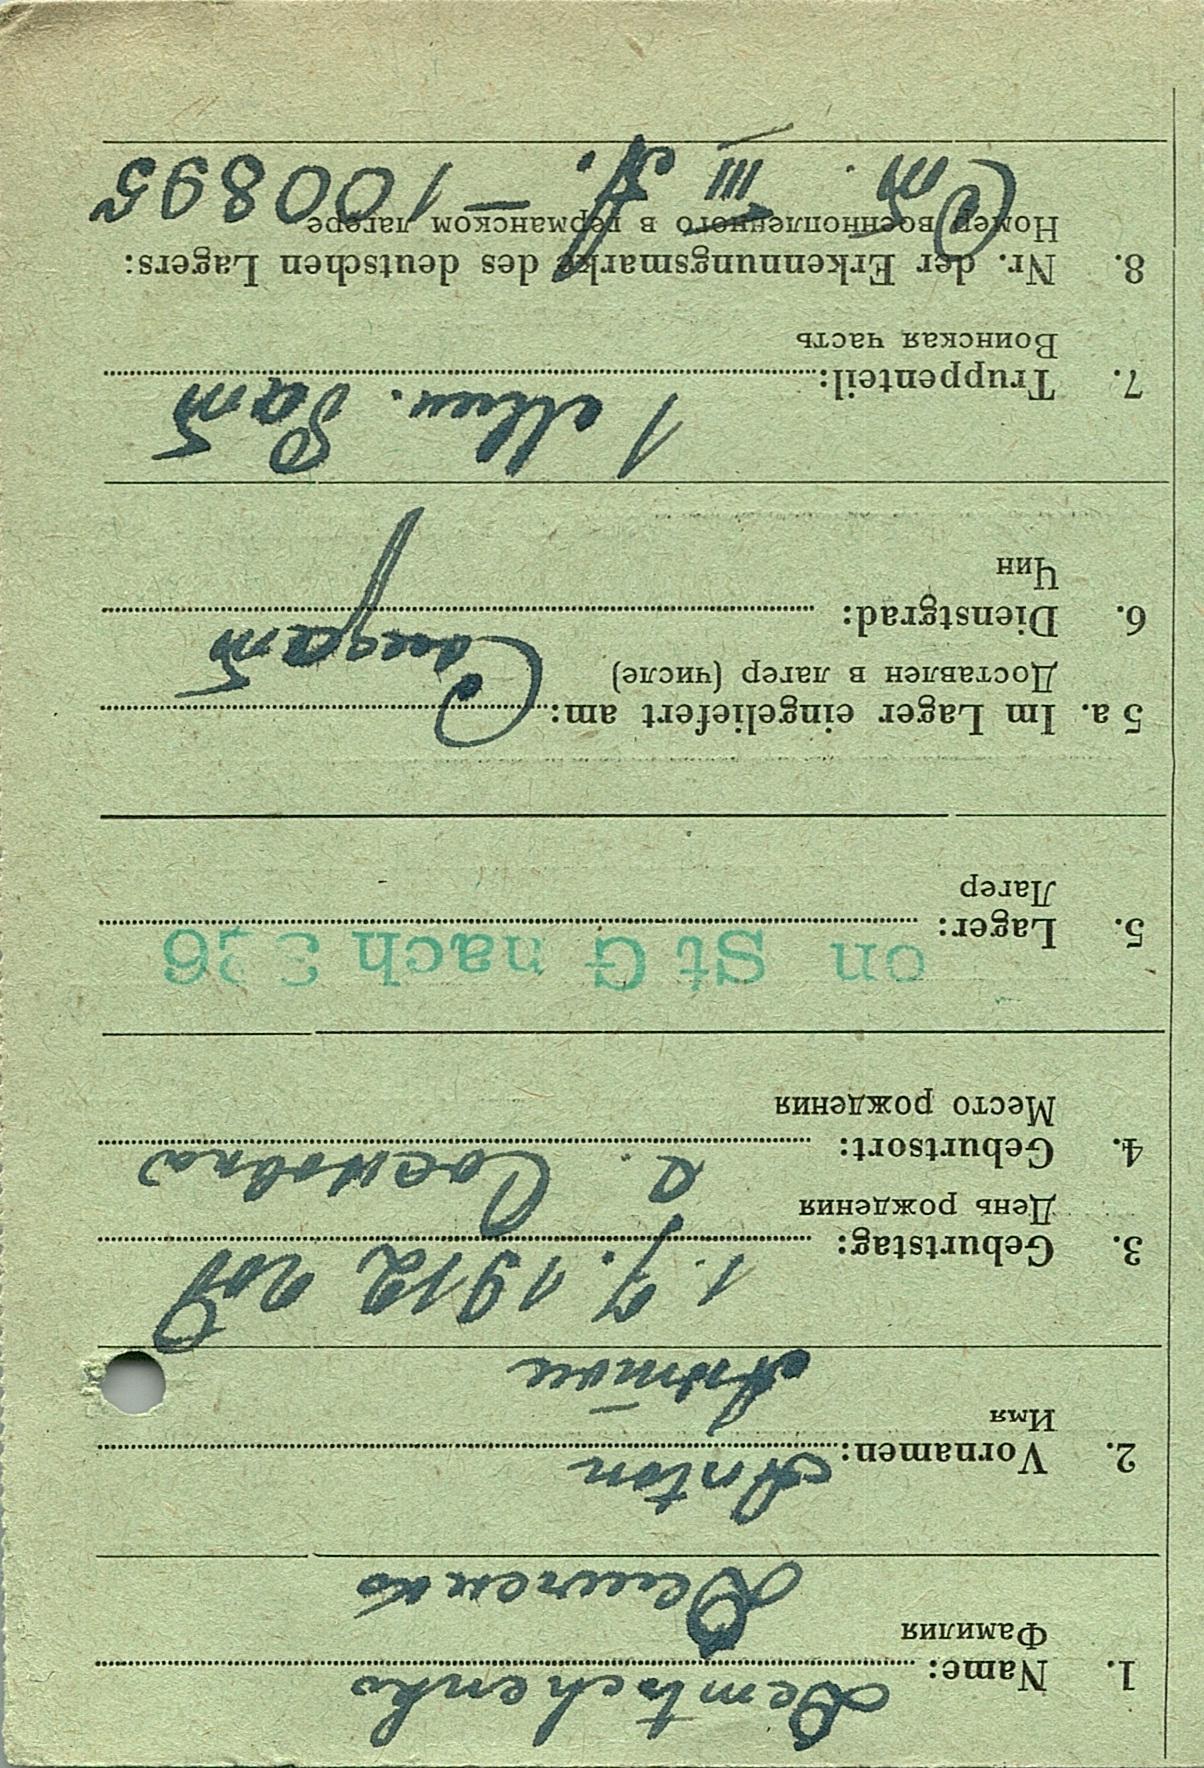 1. Name: Demtschenko
Фамилия Демченко
2. Vornamen: Anton
Имя Антон
3. Geburtstag: 1.7.1912 год
День рождения
4. Geburtsort: с.
Место рождения
5. Lager: on St G nach 326
Лагер
5a. Im Lager eingeliefert am:
Доставлен в лагер (числе)
6. Dienstgrad: Солдат
Чин
7. Truppenteil: 1 Мин. Бат
Воинская часть
8. Nr. der Erkennungsmarke des deutschen Lagers:
Номер военнопленного в германском лагере
Ст. III А. – 100895